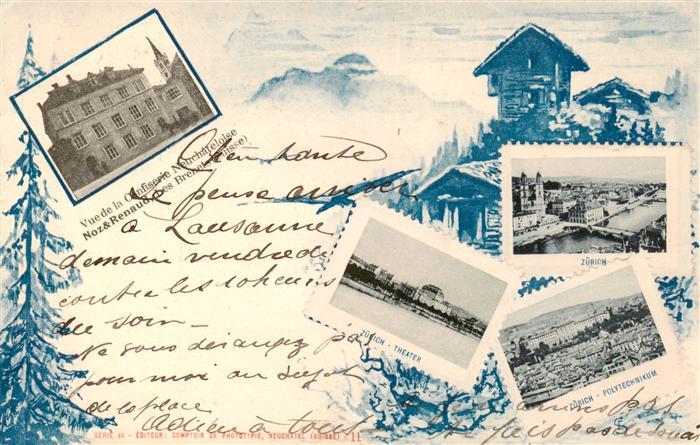 Vue de la Confiserie Neuchâteloise
Noz&Renaud, Les Brenets (Suisse)
Chère tante
Je pense arriver
à Lausanne
demain vendredi
contre les
du soir –
Ne vous dérangez pas
pour moi au sujet
de la place
Adieu à tous
pas
ZÜRICH
ZÜRICH - THEATER
ZÜRICH - POLYTECHNIKUM
SÉRIE 40 - ÉDITEUR: COMPTOIR DE PHOTOTYPIE, NEUCHATEL (SUISSE) 11